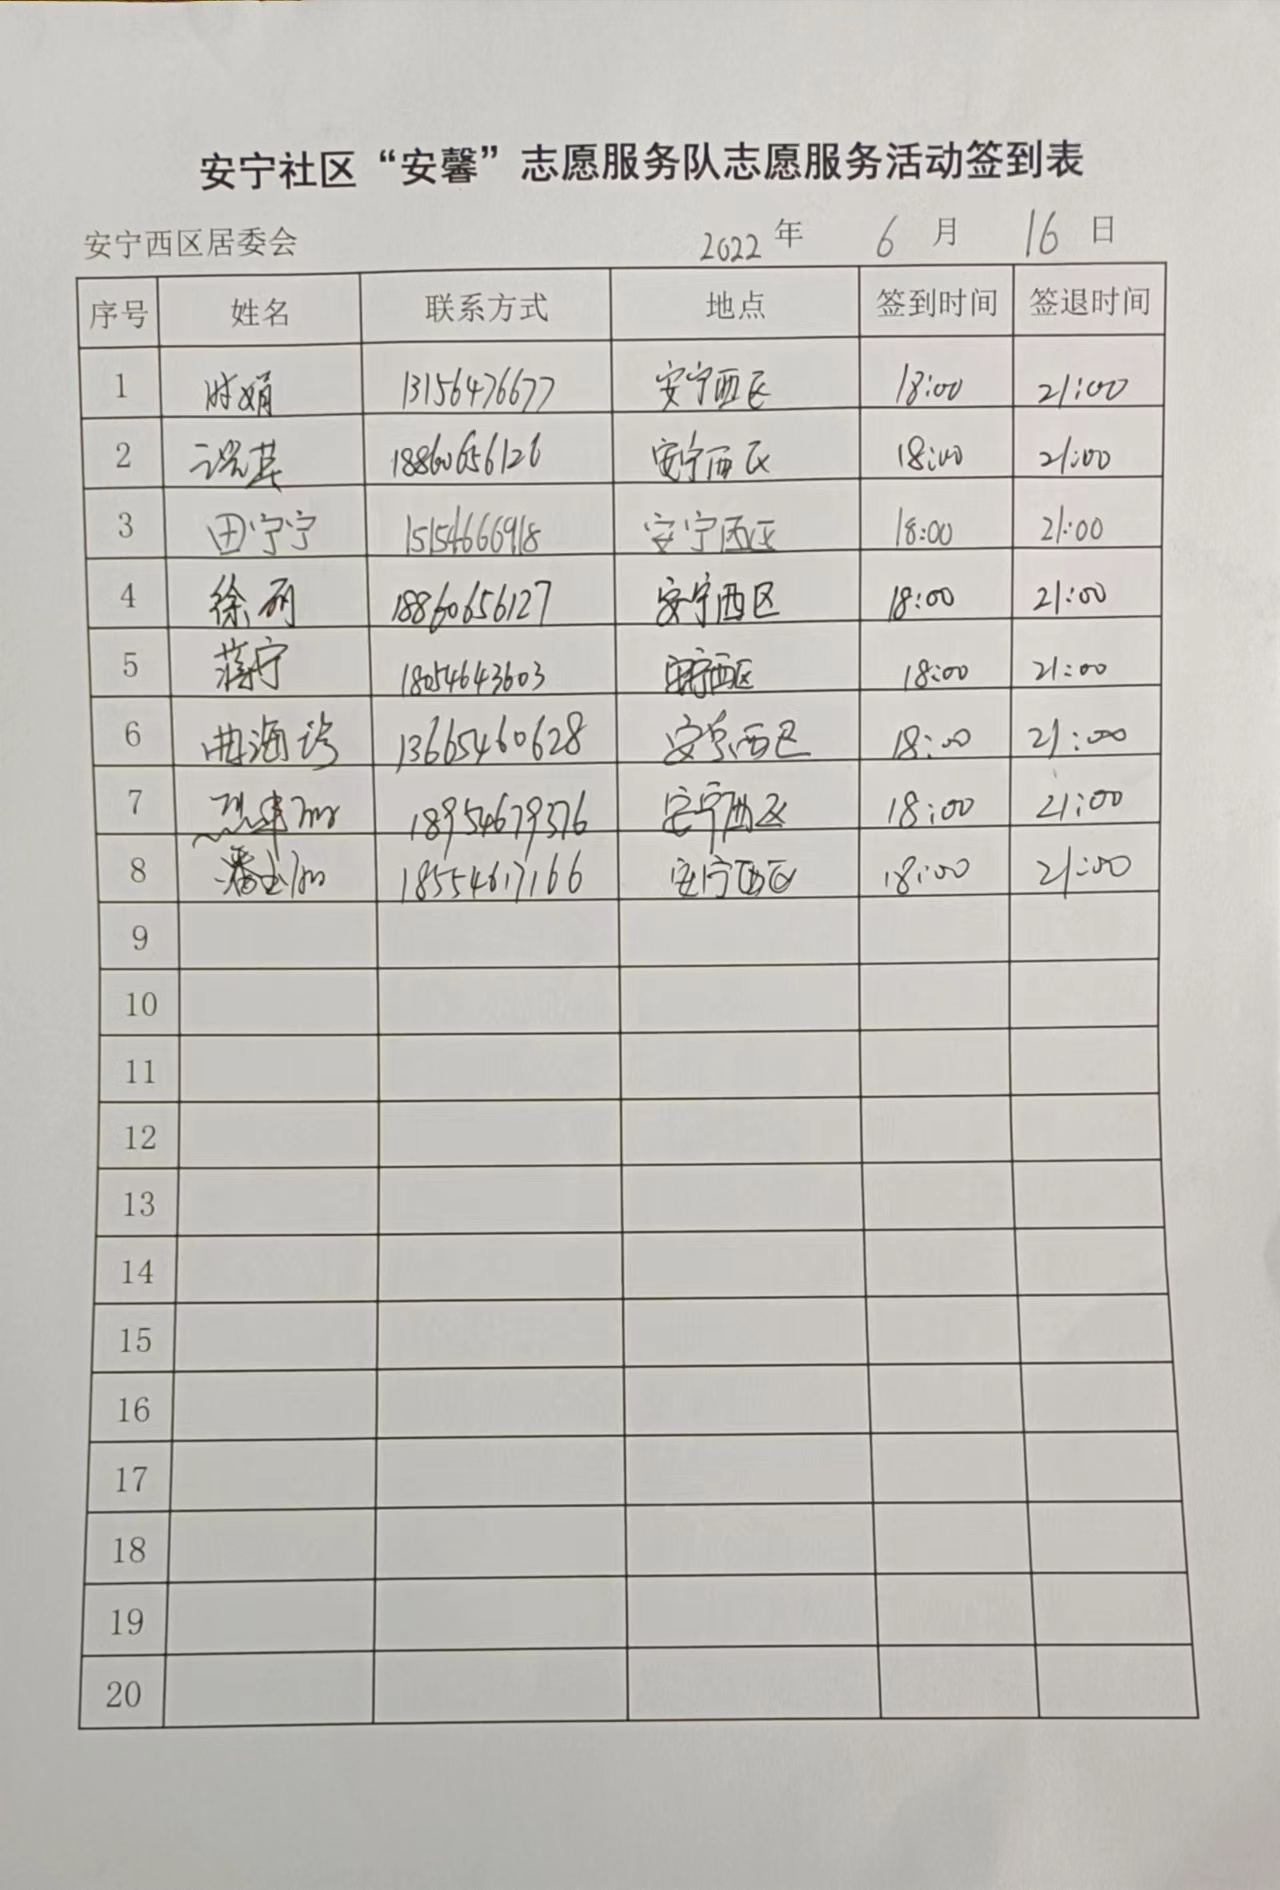 安宁社区“安馨”志愿服务队志愿服务活动签到表
安宁西区居委会 2022 年 6 月 16 日
序号 姓名 联系方式 地点 签到时间 签退时间
1 时娟 13156476677 安宁西区 18:00 21:00
2 18860656126 安宁西区 18:00 21:00
3 田宁宁 15154666918 安宁西区 18:00 21:00
4 徐丽 18860656127 安宁西区 18:00 21:00
5 蒋宁 18054643603 安宁西区 18:00 21:00
6 曲海 13665460628 安宁西区 18:00 21:00
7 18954679376 安宁西区 18:00 21:00
8 潘 18554617166 安宁西区 18:00 21:00
9
10
11
12
13
14
15
16
17
18
19
20